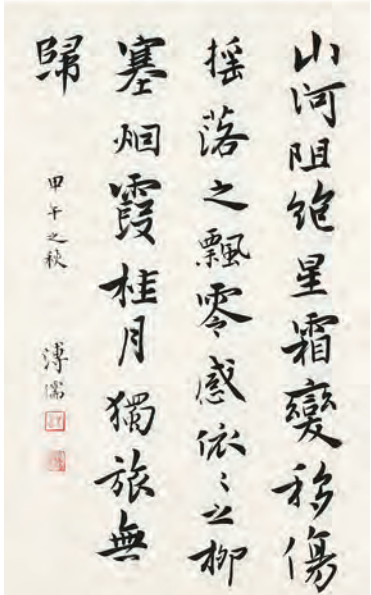 山河阻絶星霜變移傷
搖落之飄零感依〻之柳
塞烟霞桂月獨旅無
歸
甲午之秋
溥儒